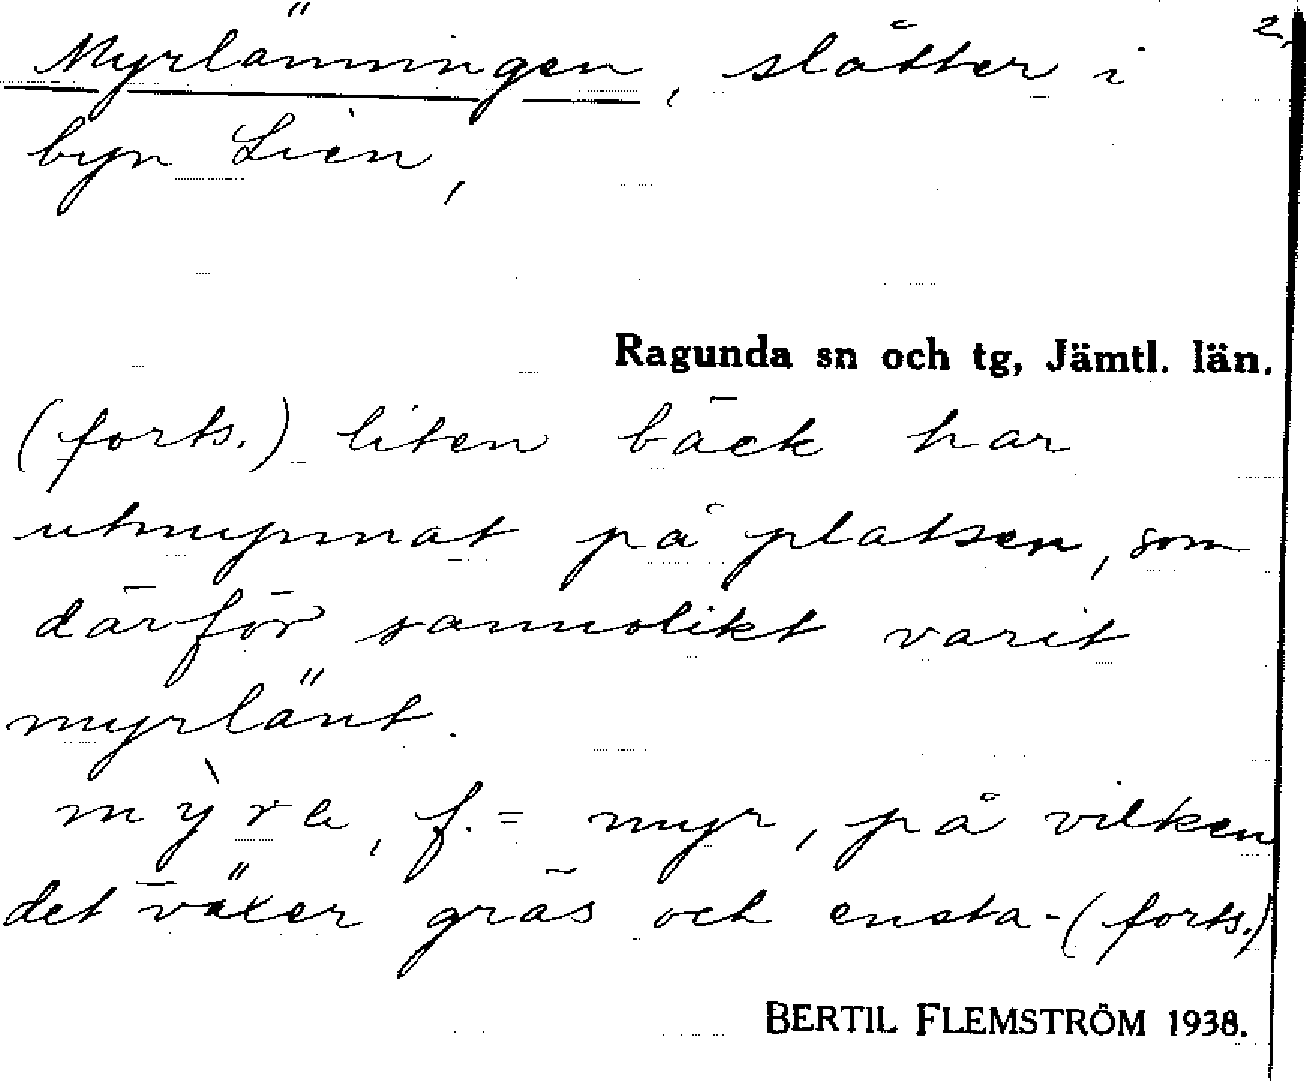 2.
Myrlänningen, slåtter i
byn Lien,
Ragunda sn och tg, Jämtl. län.
(forts.) liten bäck har
utmynnat på platsen, som
därför sannolikt varit
myrlänt.
mỳra, f. = myr, på vilken
det växer gräs och ensta- (forts.)
BERTIL FLEMSTRÖM 1938.